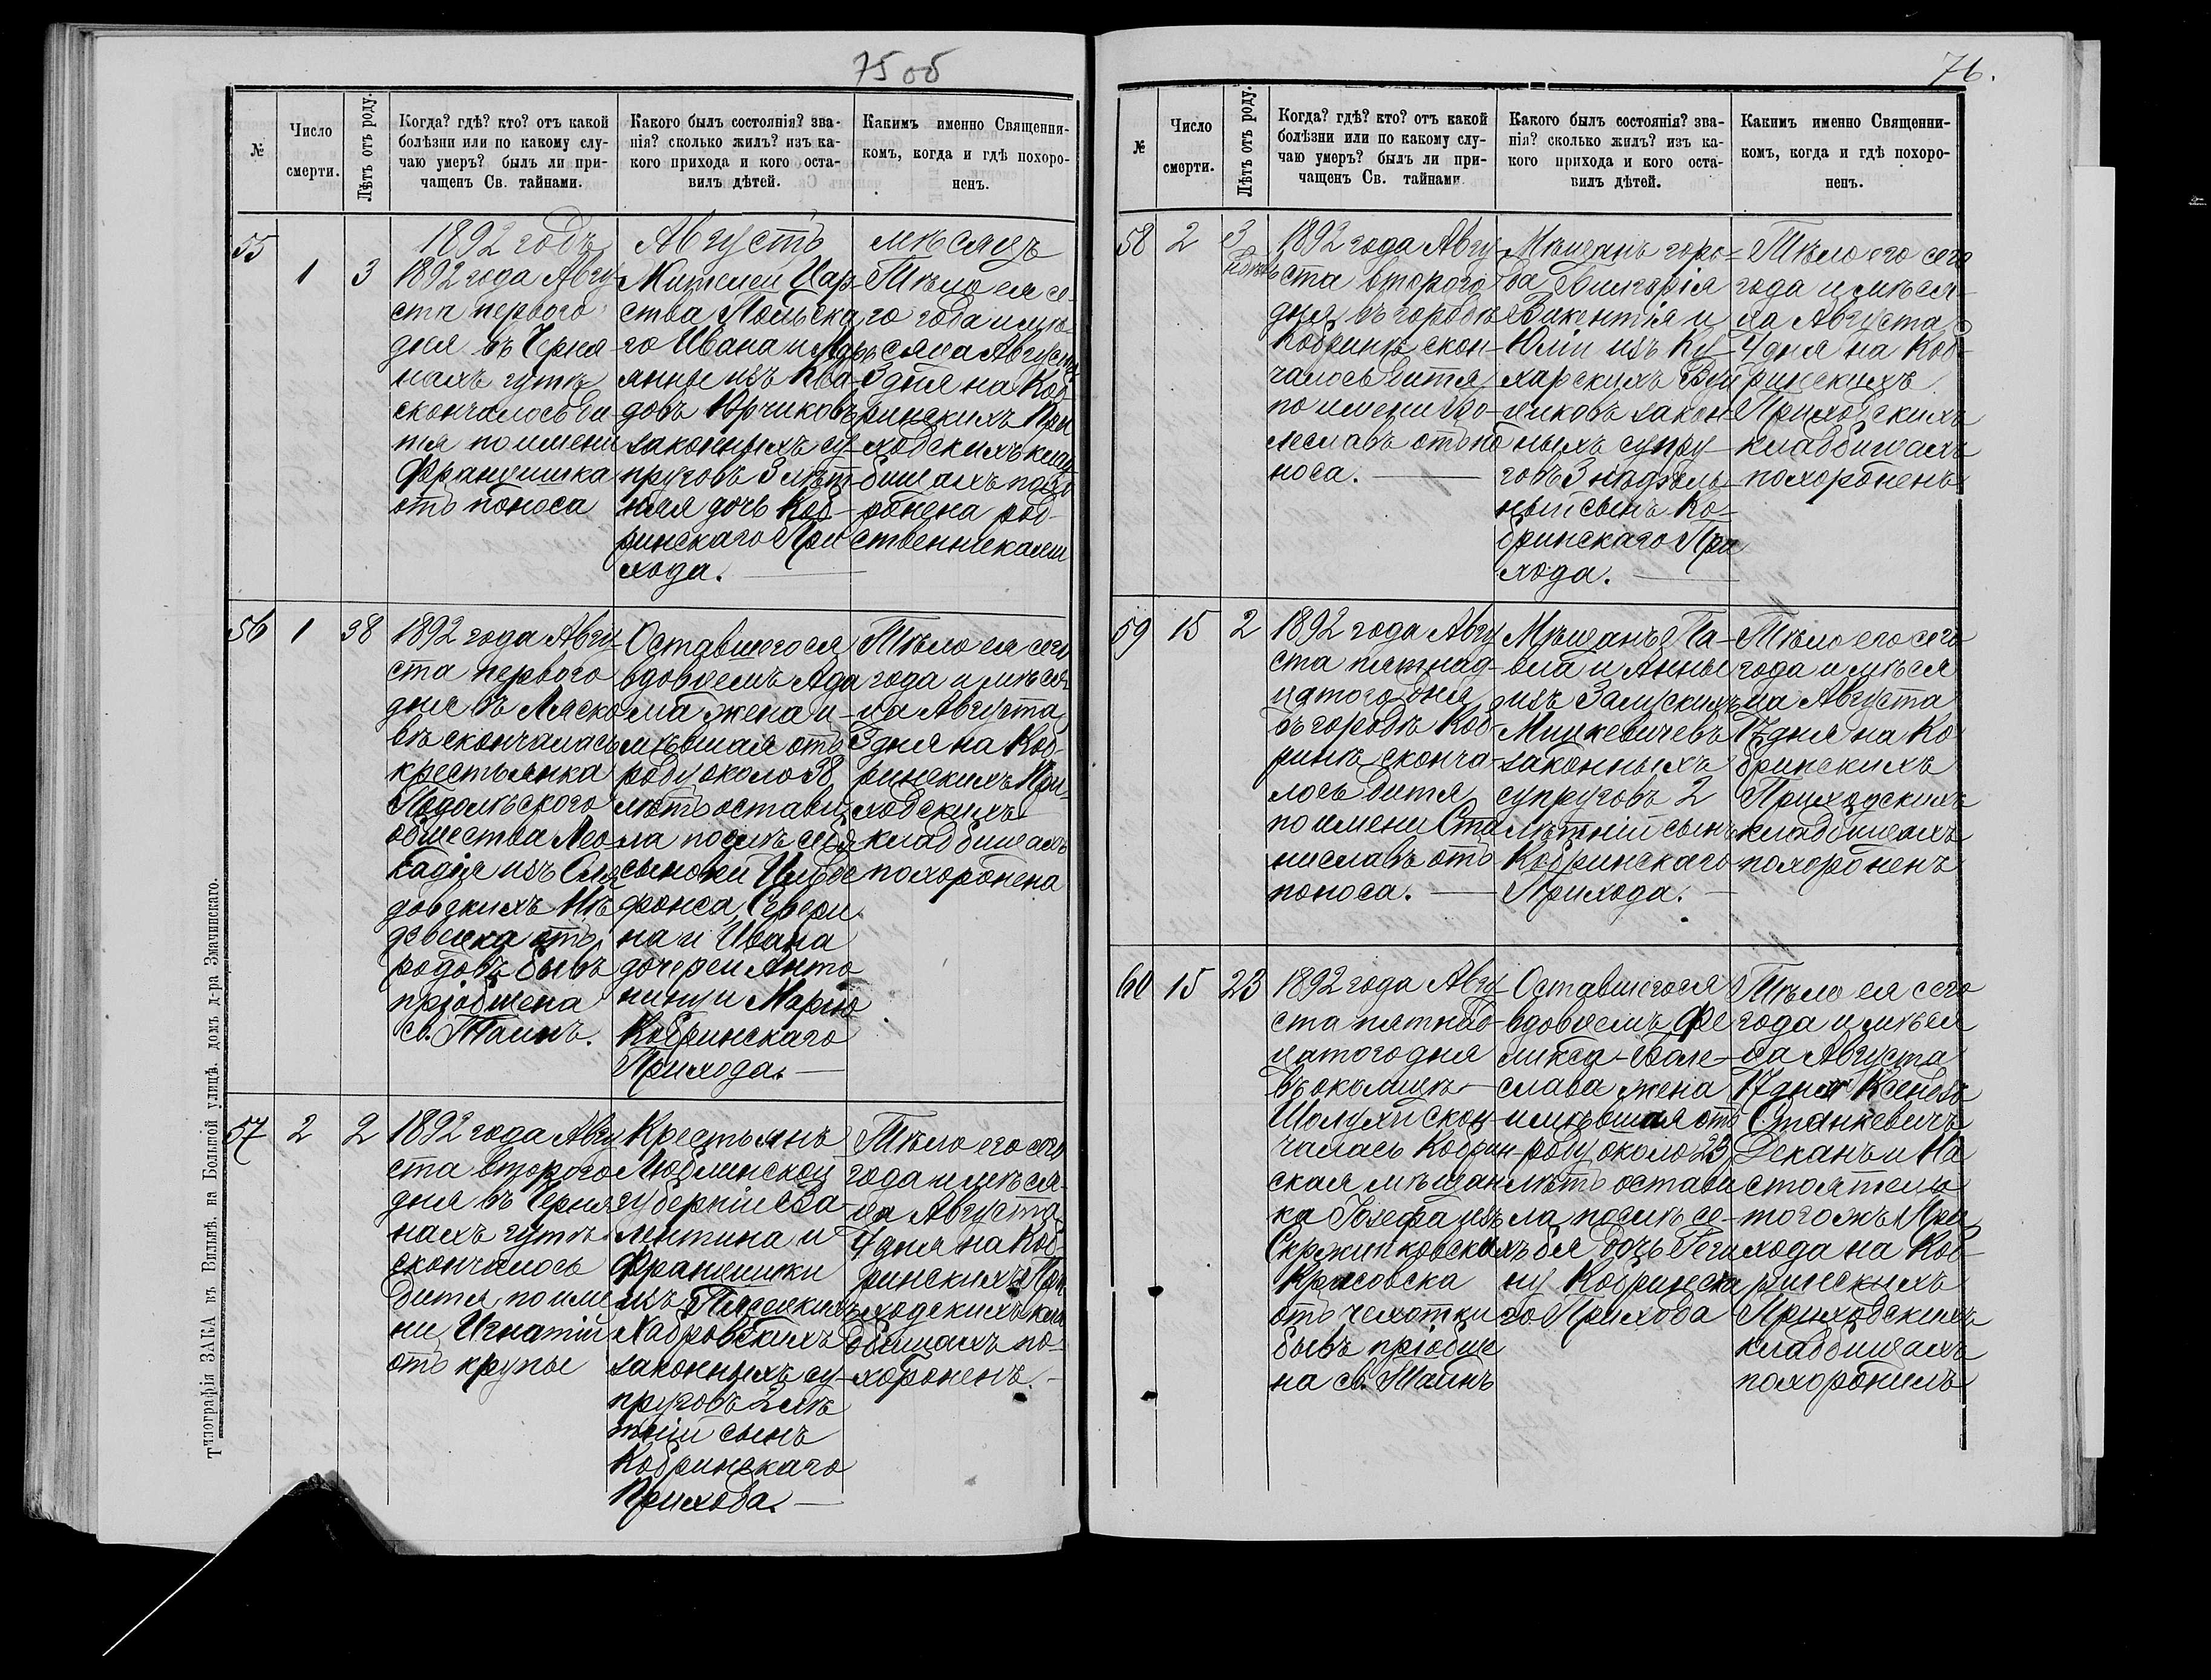 75 об
№
Число
смерти.
Лѣтъ отъ роду.
Когда? гдѣ? кто? отъ какой
болѣзни или по какому слу-
чаю умеръ? былъ ли при-
чащенъ Св. тайнами.
Какого былъ состоянія? зва-
нія? сколько жилъ? изъ ка-
кого прихода и кого оста-
вилъ дѣтей.
Какимъ именно Священни-
комъ, когда и гдѣ похоро-
ненъ.
1892 годъ Августъ мѣсяцъ
55
1
3
1892 года Авгу-
ста первого
дня въ Черня
нахъ гуткѣ
скончалось ди
тя по имени
Францишка
отъ поноса
Жителей Цар-
ства Польска
го Ивана и Марь
янны изъ
довъ Юрчиковъ
законныхъ су-
пруговъ 3 лѣт-
няя дочь Коб-
ринскаго При
хода.
Тѣло ея се-
го года и мѣ-
сяца Августа
3 дня на Коб-
ринскихъ При
ходскихъ клад
бищахъ похо
ронена род-
ственниками
56
1
38
1892 года Авгу-
ста первого
дня въ Ляско
вѣ скончалась
крестьянка
общества Лео
кадія изъ
довскихъ
отъ
родовъ бывъ
пріобщена
св. Таинъ.
Оставшегося
вдовцемъ Ада
ма жена и-
мѣвшая отъ
роду около 38
лѣтъ остави
ла послѣ себя
сыновей Ильде
фонса, Севери
на и Ивана
дочерей Анто
нину и Марію
Кобринскаго
Прихода.
Тѣло ея сего
года и мѣся
ца Августа
3 дня на Коб-
ринскихъ При-
ходскихъ
кладбищахъ
похоронена
57
2
2
1892 года Авгу
ста второго
дня въ Черня
нахъ гуткѣ
скончалось
дитя по име
ни Игнатій
отъ крупы
Крестьянъ
Люблинской
губерніи Ва-
лентина и
Францишки
изъ
законныхъ су-
пруговъ 2 лѣ
тній сынъ
Кобринскаго
Прихода.
Тѣло его сего
года и мѣся-
ца Августа
4 дня на Коб-
ринскихъ При
ходскихъ кла
дбищахъ по-
хороненъ.
Типографія ЗАКА въ Вильнѣ, на Большой улицѣ, домъ д-ра Змачинскаго.
76.
№
Число
смерти.
Лѣтъ отъ роду.
Когда? гдѣ? кто? отъ какой
болѣзни или по какому слу-
чаю умеръ? былъ ли при-
чащенъ Св. тайнами.
Какого былъ состоянія? зва-
нія? сколько жилъ? изъ ка-
кого прихода и кого оста-
вилъ дѣтей.
Какимъ именно Священни-
комъ, когда и гдѣ похоро-
ненъ.
58
2
3
1892 года Авгу-
ста второго
дня въ городѣ
Кобринѣ скон-
чалось дитя
по имени Бо-
леславъ отъ по
носа.
Мѣщанъ горо-
да
Викентія и
Юліи изъ Ку-
харскихъ
законъ
ныхъ супру-
говъ 3 недѣль-
ный сынъ Ко-
бринскаго При
хода.
Тѣло его сего
года и мѣся-
ца Августа
4 дня на Коб-
ринскихъ
Приходскихъ
кладбищахъ
похороненъ
59
15
2
1892 года Авгу
ста пятнад-
цатого дня
въ городѣ Коб-
ринѣ сконча-
лось дитя
по имени Ста
ниславъ отъ
поноса.
Мѣщанъ Па-
вла и Анны
изъ Залускихъ
Мицкевичевъ
законныхъ
супруговъ 2
лѣтній сынъ
Кобринскаго
Прихода.
Тѣло его сего
года и мѣся
ца Августа
17 дня на Ко
бринскихъ
Приходскихъ
кладбищахъ
похороненъ
60
15
23
1892 года Авгу-
ста пятнад-
цатого дня
въ околицѣ
скон-
чалась Кобрин-
ская мѣщан
ка Іозефа изъ
Скржипковскихъ
Красовска
отъ чехотки
бывъ пріобще
на св. Таинъ
Оставшегося
вдовцемъ Фе
ликса-Боле-
слава жена
имѣвшая отъ
роду около 23
лѣтъ остави
ла послѣ се-
бя дочь Реги
ну Кобринска
го Прихода
Тѣло ея сего
года и мѣся
ца Августа
17 дня Ксендзъ
Станкевичъ
Деканъ и На
стоятель
тогожъ При
хода на Коб-
ринскихъ
Приходскихъ
кладбищахъ
похоронилъ